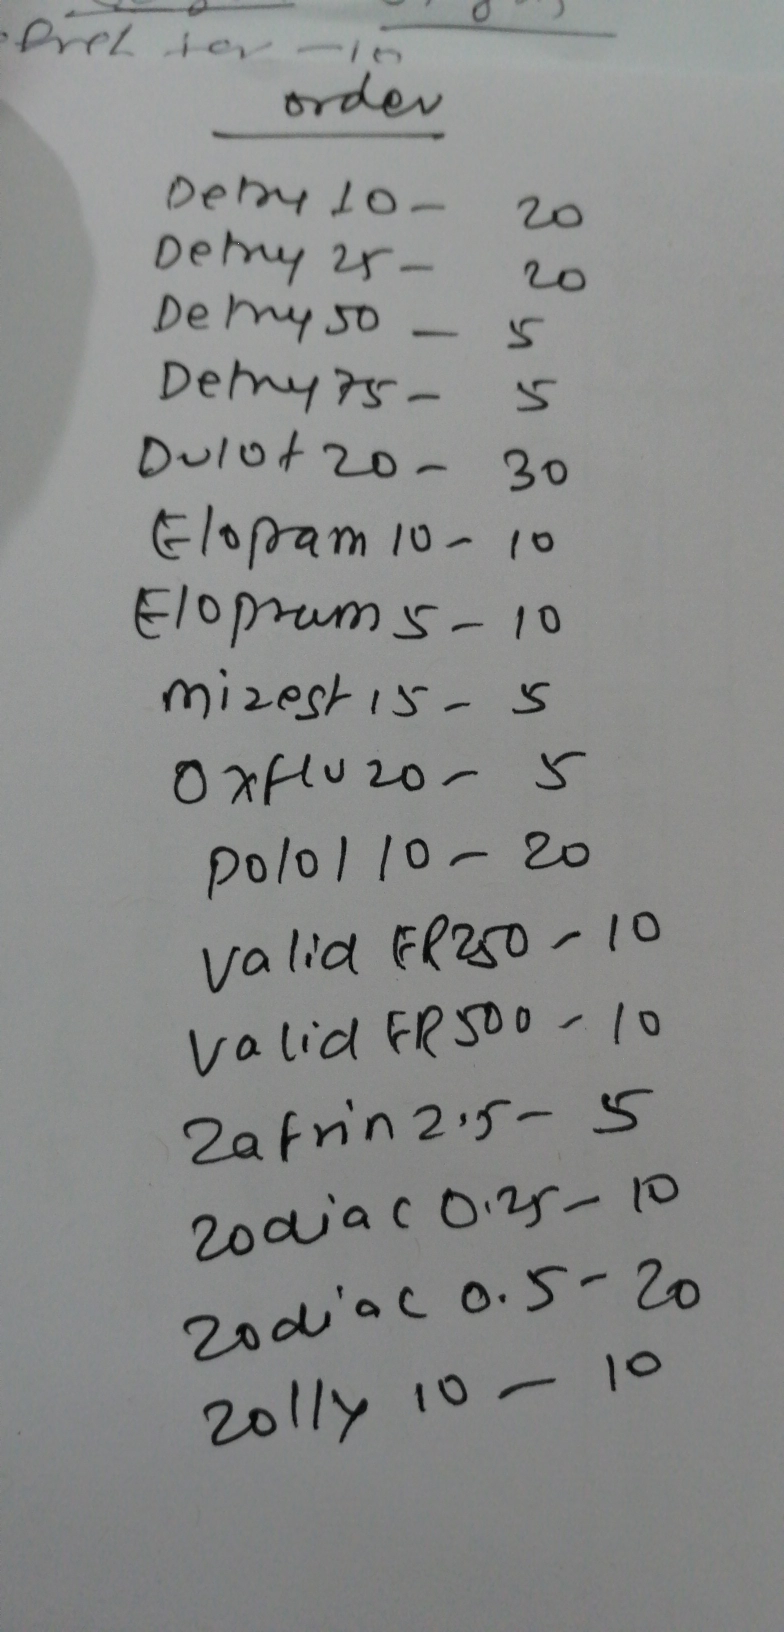 order
Detny 10 - 20
Detny 25 - 20
Detny 50 - 5
Detny 75 - 5
Dulot 20 - 30
Elopram 10 - 10
Elopram 5 - 10
mizest 15 - 5
Oxflu 20 - 5
polol 10 - 20
valid ER 250 - 10
valid ER 500 - 10
Zafrin 2.5 - 5
zodiac 0.25 - 10
zodiac 0.5 - 20
zolly 10 - 10